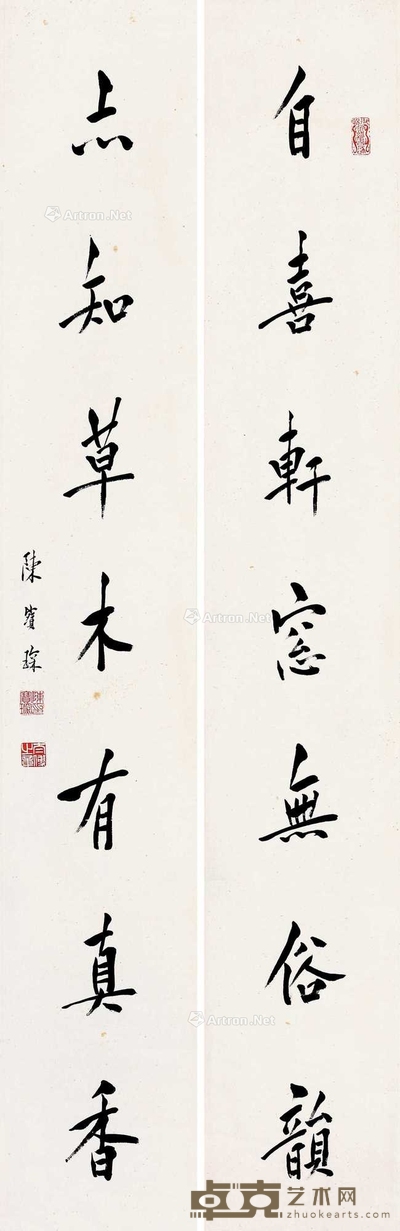 自喜軒窓無俗韻
亦知草木有真香
陳寶琛
Artron.Net
Artron.Net
Artron.Net
卓克艺术网
zhuokearts.com